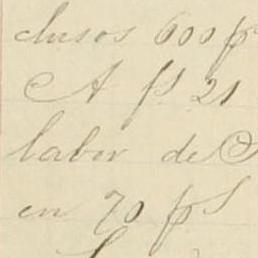 clusos 600 p
A f. 21
labor de S
en 70 ps